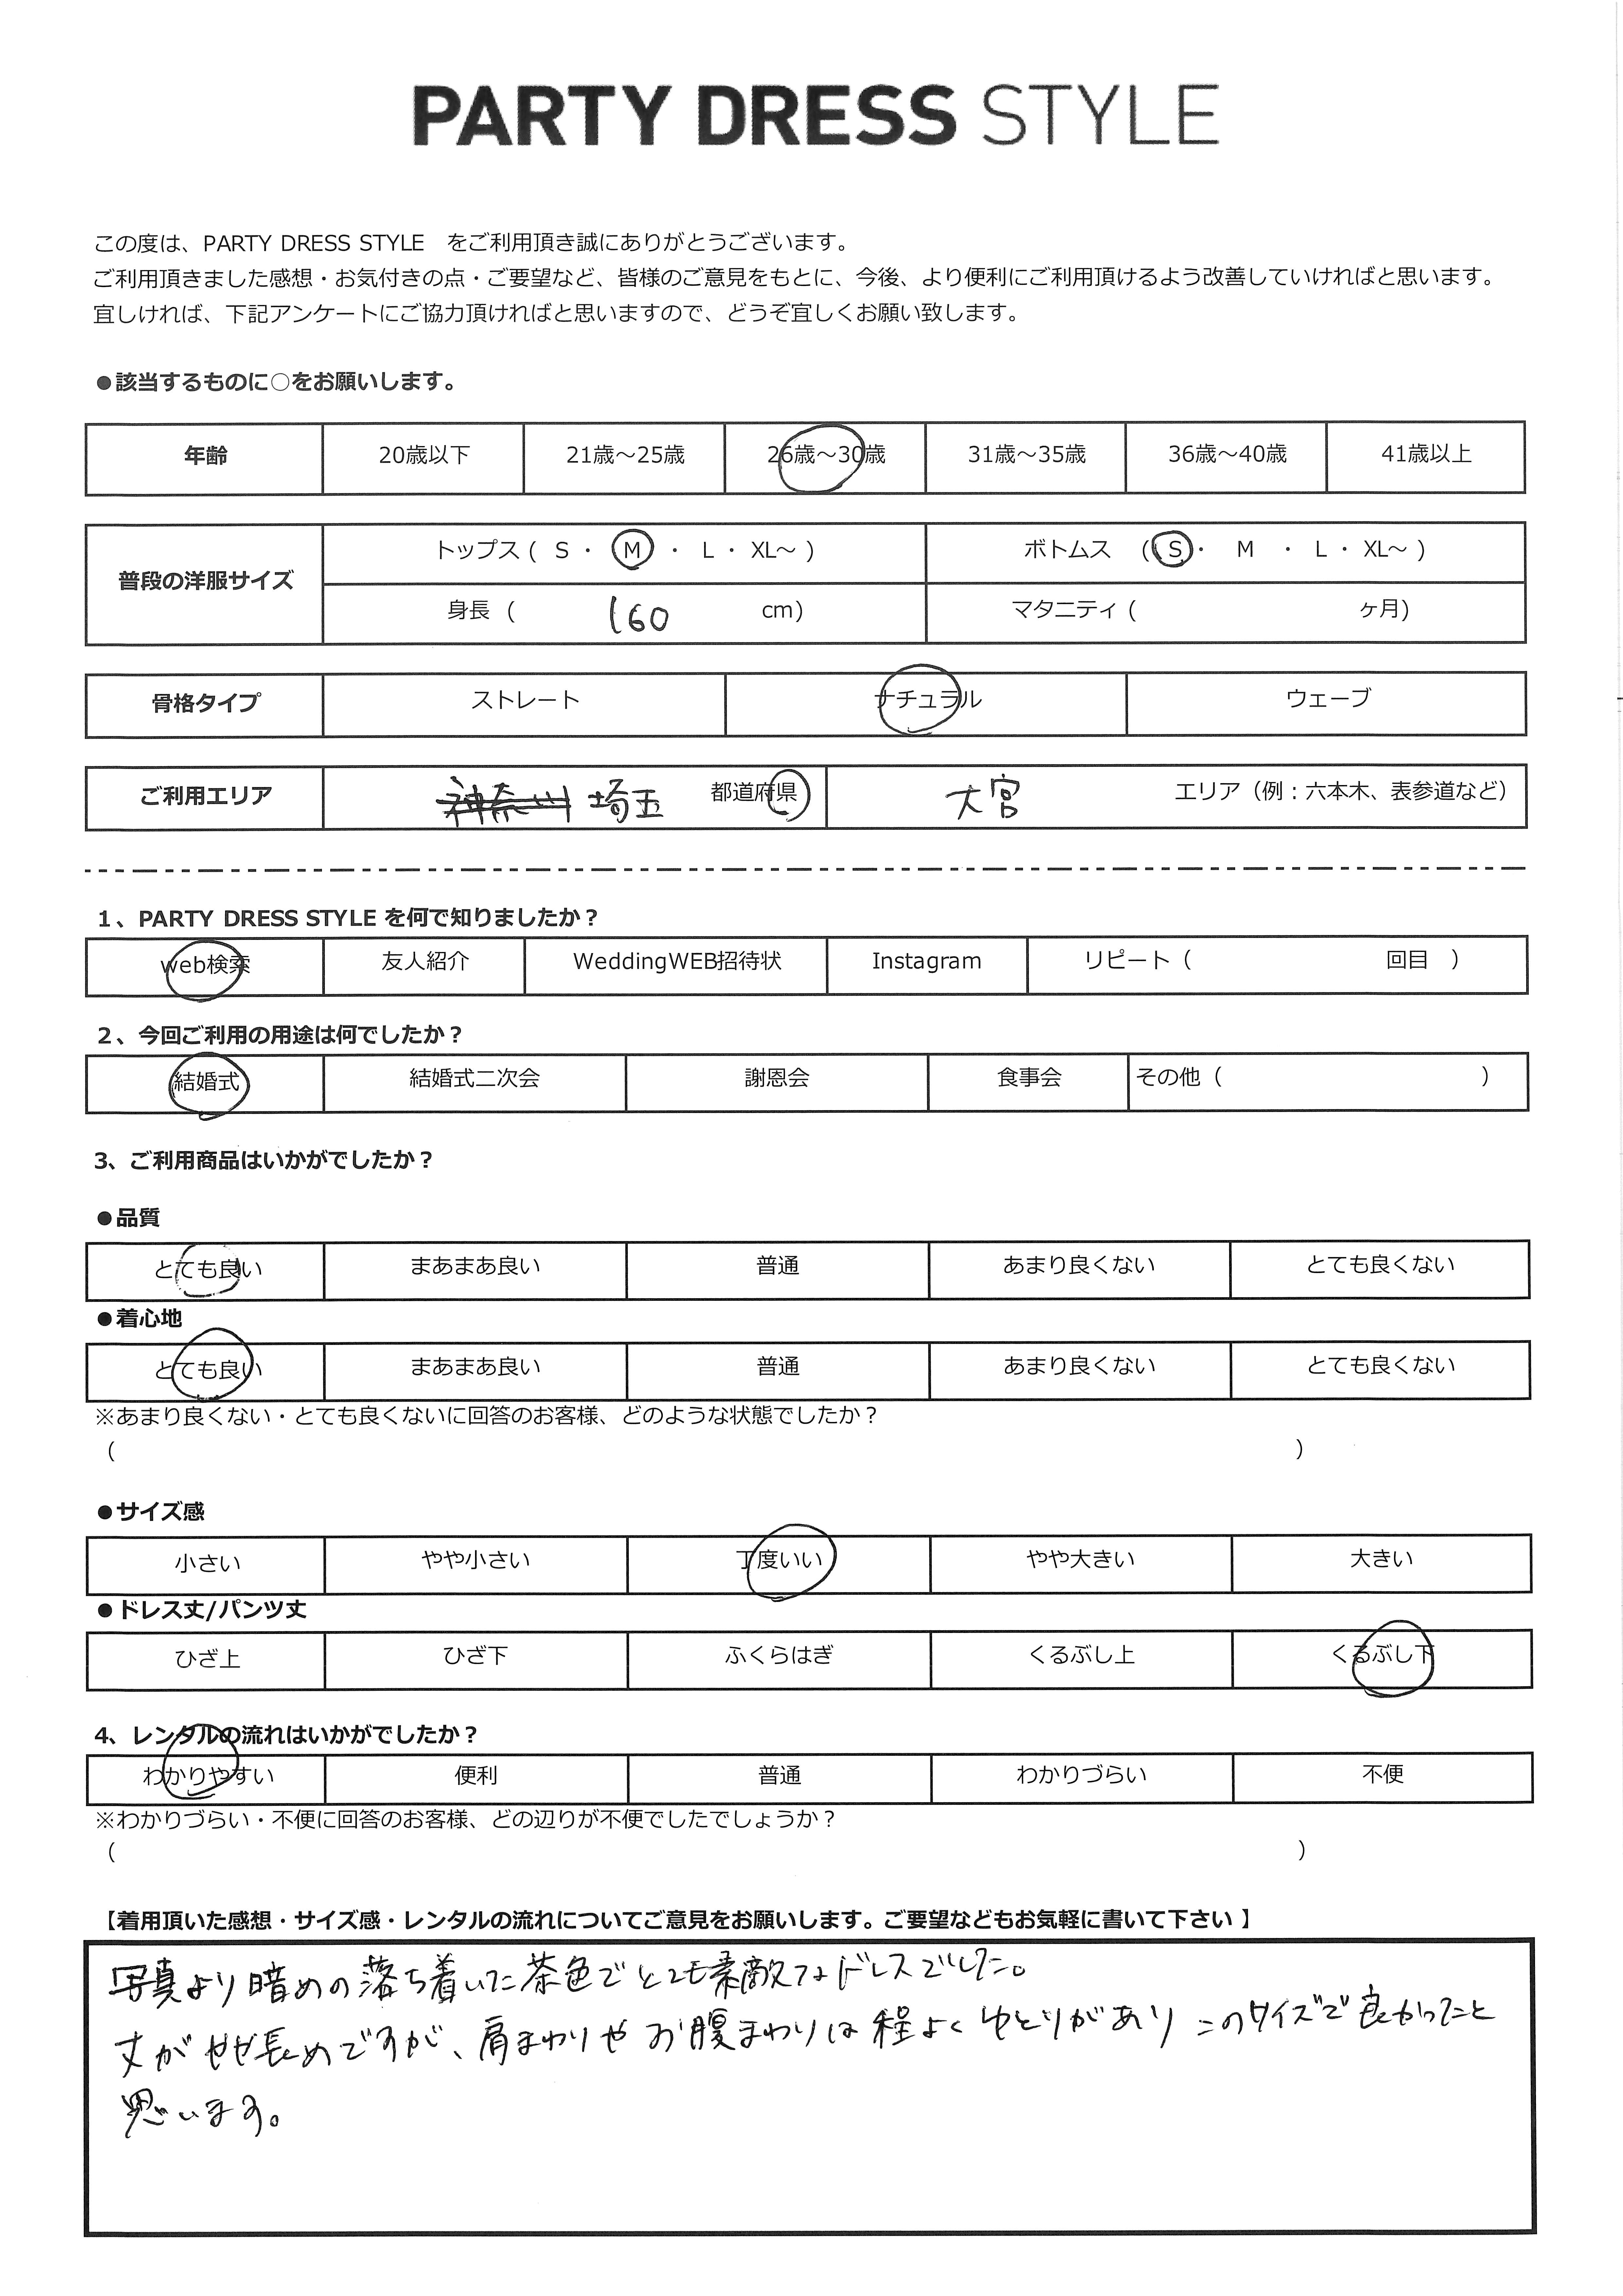 PARTY DRESS STYLE
この度は、PARTY DRESS STYLE　をご利用頂き誠にありがとうございます。
ご利用頂きました感想・お気付きの点・ご要望など、皆様のご意見をもとに、今後、より便利にご利用頂けるよう改善していければと思います。
宜しければ、下記アンケートにご協力頂ければと思いますので、どうぞ宜しくお願い致します。
●該当するものに○をお願いします。
年齢 20歳以下 21歳～25歳 26歳～30歳 31歳～35歳 36歳～40歳 41歳以上
普段の洋服サイズ
トップス ( S ・ M ・ L ・ XL～ ) ボトムス ( S ・ M ・ L ・ XL～ )
身長 ( 160 cm) マタニティ ( ヶ月)
骨格タイプ ストレート ナチュラル ウェーブ
ご利用エリア 神奈川 埼玉 都道府県 大宮 エリア（例：六本木、表参道など）
1、PARTY DRESS STYLE を何で知りましたか？
web検索 友人紹介 WeddingWEB招待状 Instagram リピート（ 回目 ）
2、今回ご利用の用途は何でしたか？
結婚式 結婚式二次会 謝恩会 食事会 その他（ ）
3、ご利用商品はいかがでしたか？
●品質
とても良い まあまあ良い 普通 あまり良くない とても良くない
●着心地
とても良い まあまあ良い 普通 あまり良くない とても良くない
※あまり良くない・とても良くないに回答のお客様、どのような状態でしたか？
（ ）
●サイズ感
小さい やや小さい 丁度いい やや大きい 大きい
●ドレス丈/パンツ丈
ひざ上 ひざ下 ふくらはぎ くるぶし上 くるぶし下
4、レンタルの流れはいかがでしたか？
わかりやすい 便利 普通 わかりづらい 不便
※わかりづらい・不便に回答のお客様、どの辺りが不便でしたでしょうか？
（ ）
【着用頂いた感想・サイズ感・レンタルの流れについてご意見をお願いします。ご要望などもお気軽に書いて下さい 】
写真より暗めの落ち着いた茶色でとても素敵なドレスでした。
丈がやや長めですが、肩まわりやお腹まわりは程よくゆとりがありこのサイズで良かったと
思います。